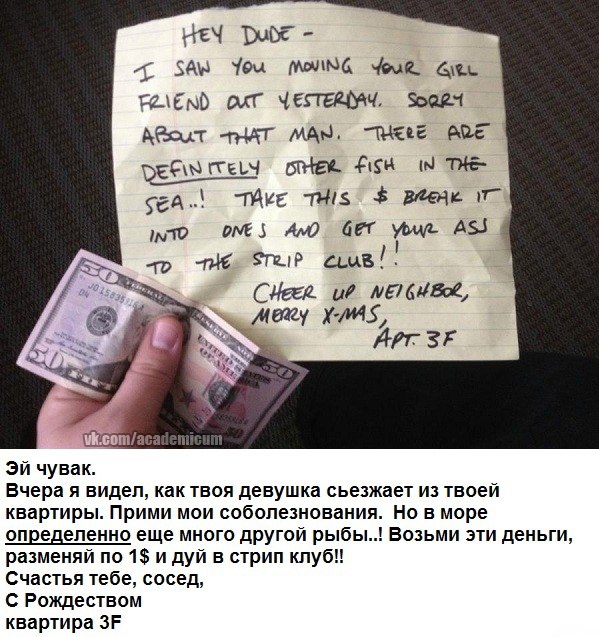 HEY DUDE -
I SAW YOU MOVING YOUR GIRL
FRIEND OUT YESTERDAY. SORRY
ABOUT THAT MAN. THERE ARE
DEFINITELY OTHER FISH IN THE
SEA..! TAKE THIS $ BREAK IT
INTO ONES AND GET YOUR ASS
TO THE STRIP CLUB!!
CHEER UP NEIGHBOR,
MERRY X-MAS,
APT. 3F
50
FEDERAL RESERVE
UNITED STATES
OF AMERICA
50
50
vk.com/academicum
Эй чувак.
Вчера я видел, как твоя девушка сьезжает из твоей
квартиры. Прими мои соболезнования. Но в море
определенно еще много другой рыбы..! Возьми эти деньги,
разменяй по 1$ и дуй в стрип клуб!!
Счастья тебе, сосед,
С Рождеством
квартира 3F